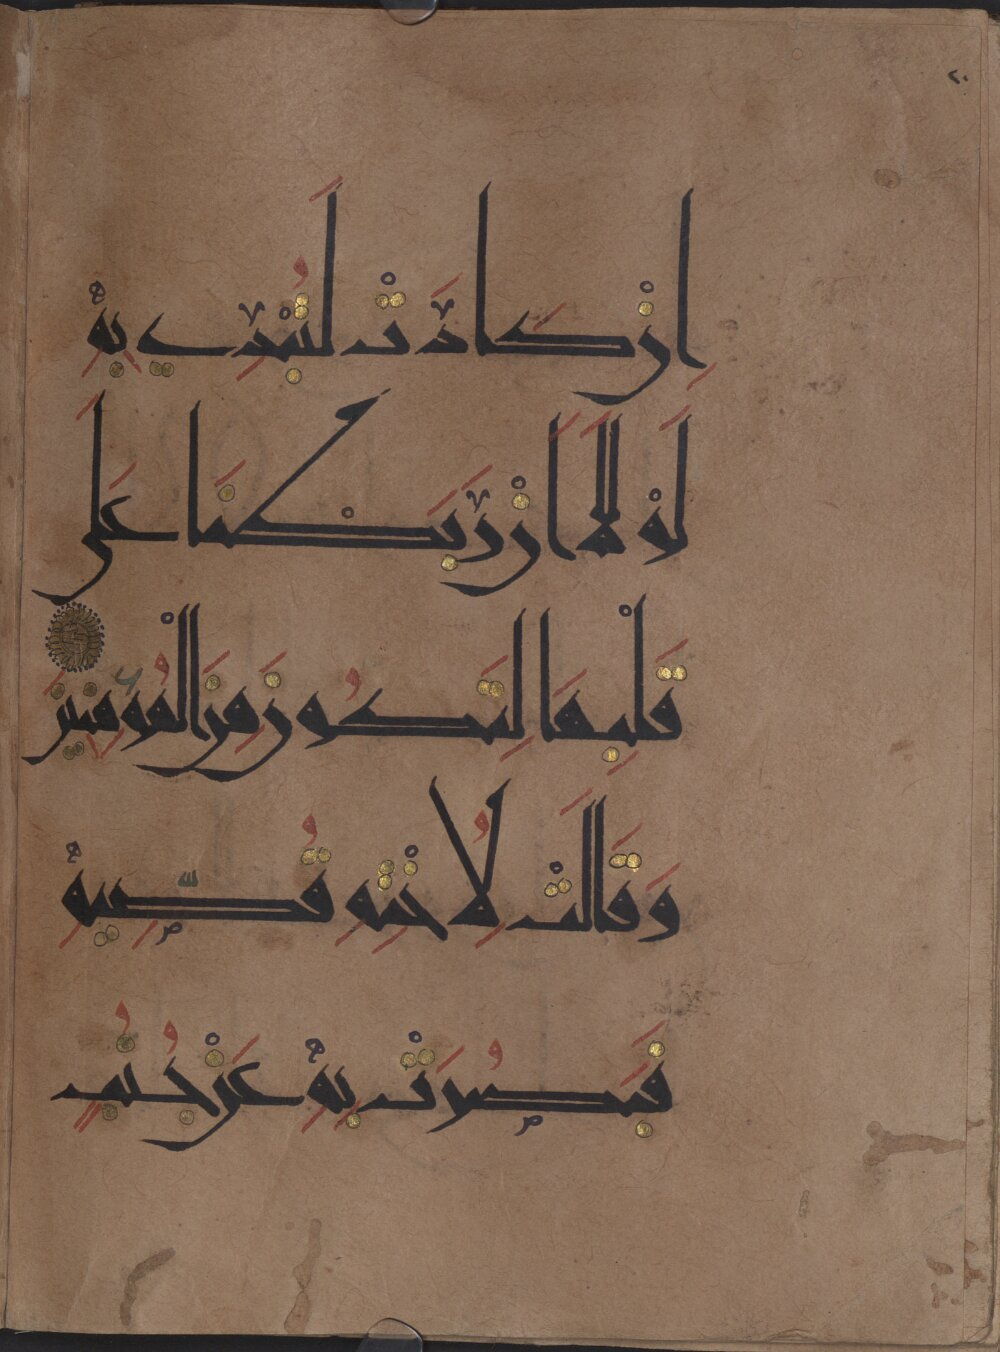 ٢٠
إِنْ كَادَتْ لَتُبْدِي بِهِ
لَوْلَا أَنْ رَبَطْنَا عَلَى
قَلْبِهَا لِتَكُونَ مِنَ الْمُؤْمِنِينَ
وَقَالَتْ لِأُخْتِهِ قُصِّيهِ
فَبَصُرَتْ بِهِ عَنْ جُنُبٍ